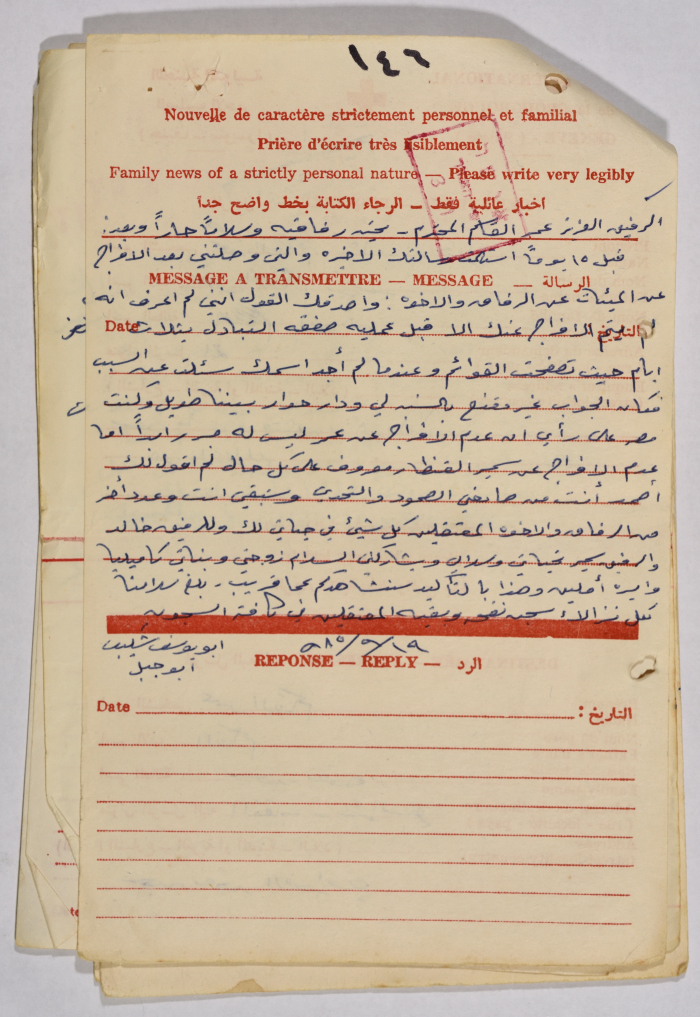 ١٤٦
Nouvelle de caractère strictement personnel et familial
Prière d'écrire très lisiblement
Family news of a strictly personal nature — Please write very legibly
اخبار عائلية فقط – الرجاء الكتابة بخط واضح جداً
الرفيق العزيز عمر القاسم المحترم - تحية رفاقية وسلاماً حاراً وبعد:
قبل ١٥ يوماً استلمت رسالتك الاخيره والتي وصلتني بعد الافراج
MESSAGE A TRANSMETTRE – MESSAGE — الرسالة
عن المئيات عن الرفاق والاخوه: واصدقك القول انني لم اعرف انه
Date التاريخ
لم يتم الافراج عنك الا قبل عمليه صفقه التبادل بثلاث
ايام حيث تصفحت القوائم وعندما لم أجد اسمك سئلت عن السبب
فكان الجواب غير مقنع بالنسبه لي ودار حوار بيننا طويل وكنت
مصر على رأي ان عدم الافراج عن عمر ليس له مبرر ابداً اما
عدم الافراج عن سمير القنطار معروف على كل حال لم اقول لك
أصمد أنت من صانعي الصمود والتحدي وستبقى انت وعدد أخر
من الرفاق والاخوه المعتقلين كل شيئ في حياتي لك وللرفيق خالد
والرفيق سمير تحياتي وسلامي ويشاركني السلام زوجتي وبناتي كاميليا
واميره أملين وهذا بالتأكيد سنشاهدكم عما قريب - بلغ سلامنا
لكل نزلاء سجن نفحه وبقيه المعتقلين في كافة السجون
٩٨٥/٩/١٩
ابو يوسف شليب
أبو جبل
REPONSE — REPLY — الرد
Date التاريخ :
te